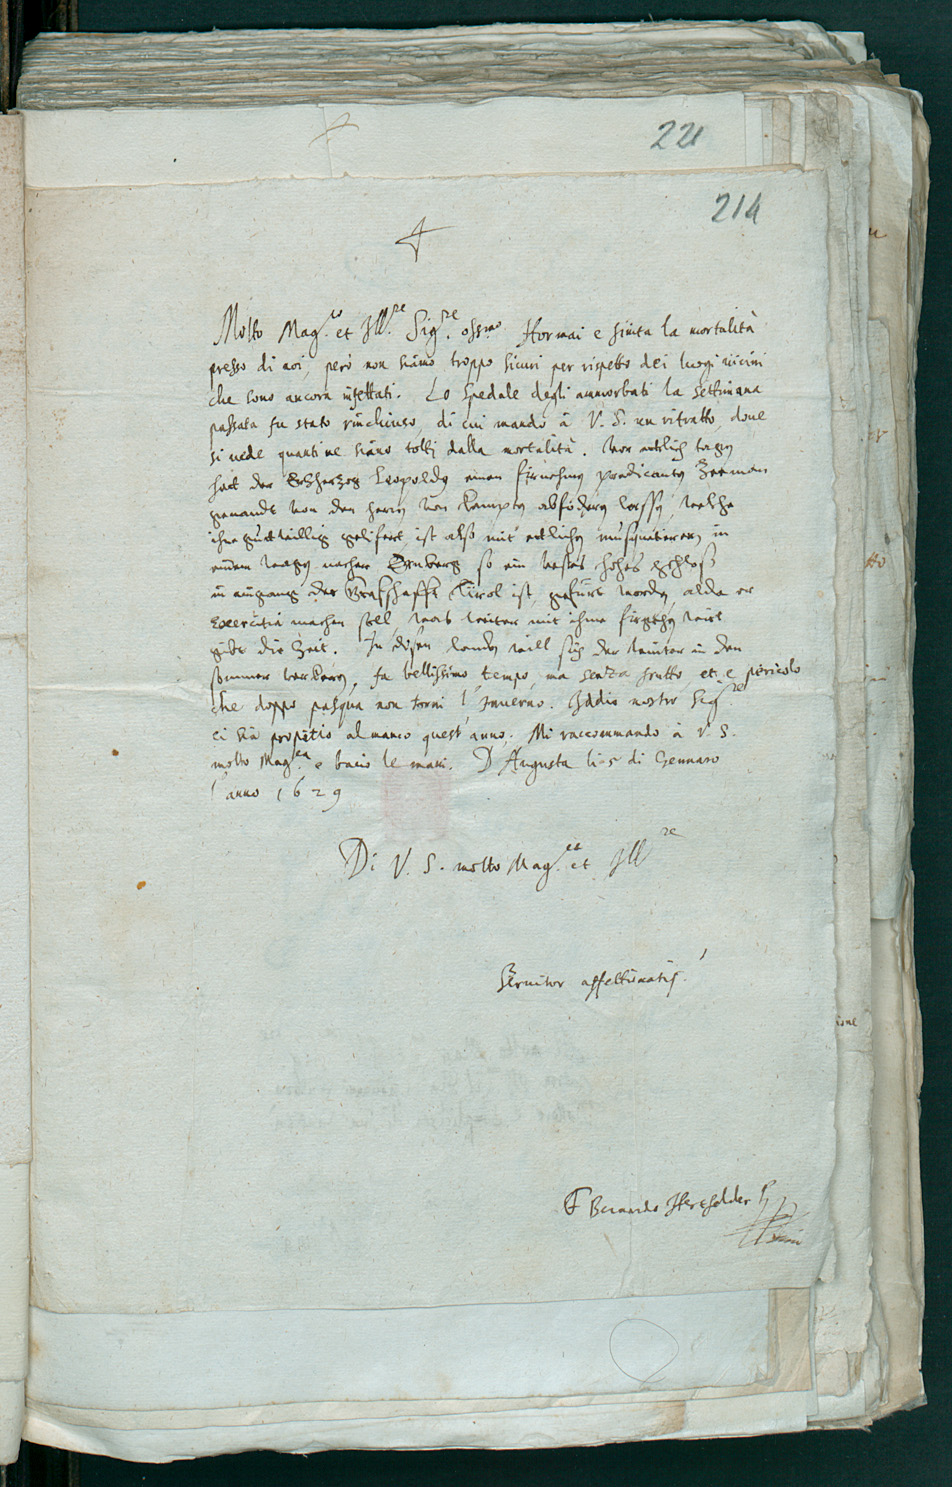 221
214
Molto Mag.co et Ill.re Sig.re oss.mo Hormai e finita la mortalità
presso di noi, però non siamo troppo sicuri per rispetto dei luogi vicini
che sono ancora infettati. Lo spedale degli ammorbati la settimana
passata fu stato rinchiuso, di cui mando à V. S. un ritratto, doue
si uede quanti ne siano tolti dalla mortalità. Vor etlich tagen
hatt der Erzherzog Leopoldt einen fürnehmen predicanten Zeeman
genandt von den herrn von Kempten abfodern lassen, welcher
ihne guettwillig gelifert ist also mit etlichen musquetierern in
einem wagen nacher Ernberg so ein vestes hohes schloss
in eingang der Grafschafft Tirol ist, gefürt worden alda er
exercitia machen soll, was weiter mit ihme fürgehen wirt
gibt die Zeit. In disen landen will sich der winter in den
sommer verkeren, fa bellissimo tempo, ma senza frutto et e pericolo
che doppo pasqua non torni l'inuerno. Iddio nostro Sig.re
ci sia propitio al manco quest' anno. Mi raccommando à V. S.
molto Mag.ca e bacio le mani. D'Augusta li 5 di Gennaro
l'anno 1629
Di V. S. molto Mag.ca et Ill.re
Seruitor affettionatiss.
Bernardo Hertfelder